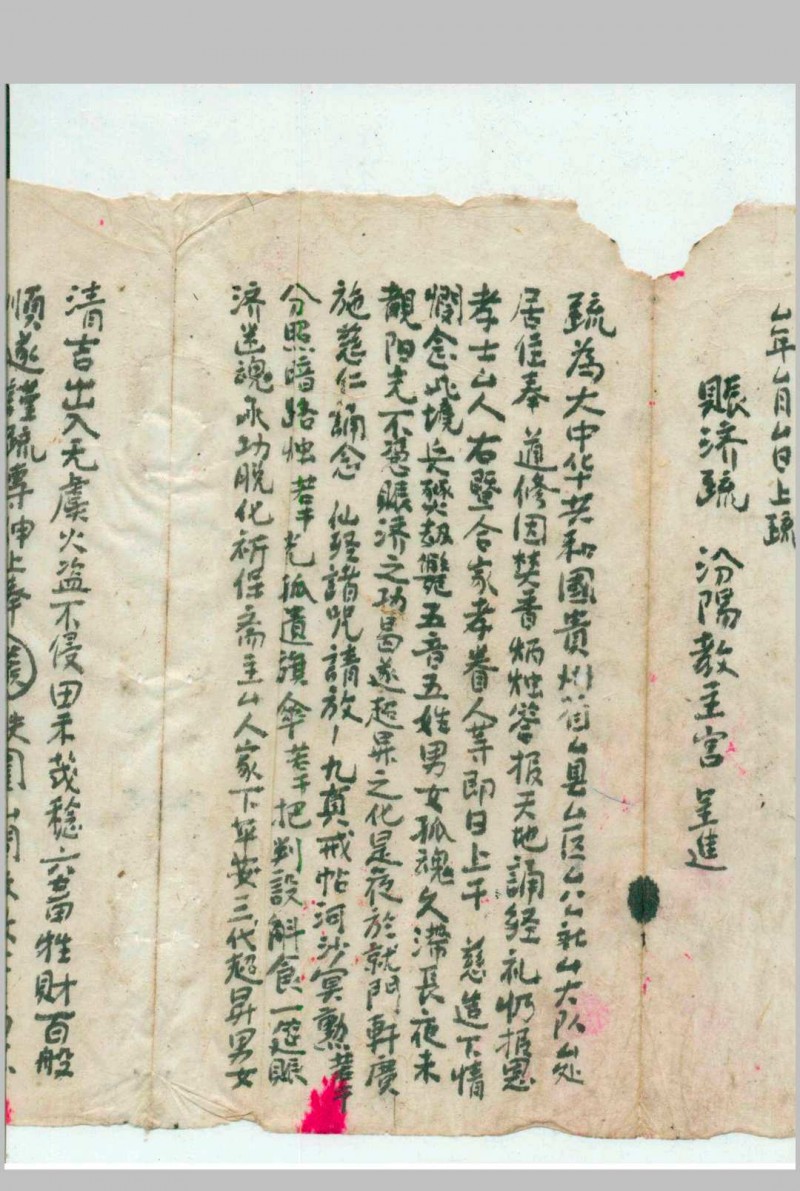 年 月 日上疏
賑济疏 汾陽教主宫 呈進
疏為大中华共和國貴州省 县 区 公社 大队 处
居住奉 道修因焚香炳烛答报天地誦経礼忏报恩
孝士 人右暨合家孝眷人等即日上干 慈造下情
憫念此境兵燹劫 五音五姓男女孤魂久滞長夜未
覩阳光不憑賑济之功曷遂超昇之化是夜於就門軒廣
施慈仁誦念 仙経諸咒請放 九真戒帖河沙冥勲若干
分照暗路烛若干光孤遺旗傘若干把判設斛食一筵賑
济迷魂承功脱化祈保斋主 人家下平安三代超昇男女
清吉出入无虞火盗不侵田禾茂稔六畜牲財百般
順遂謹疏專申上奉